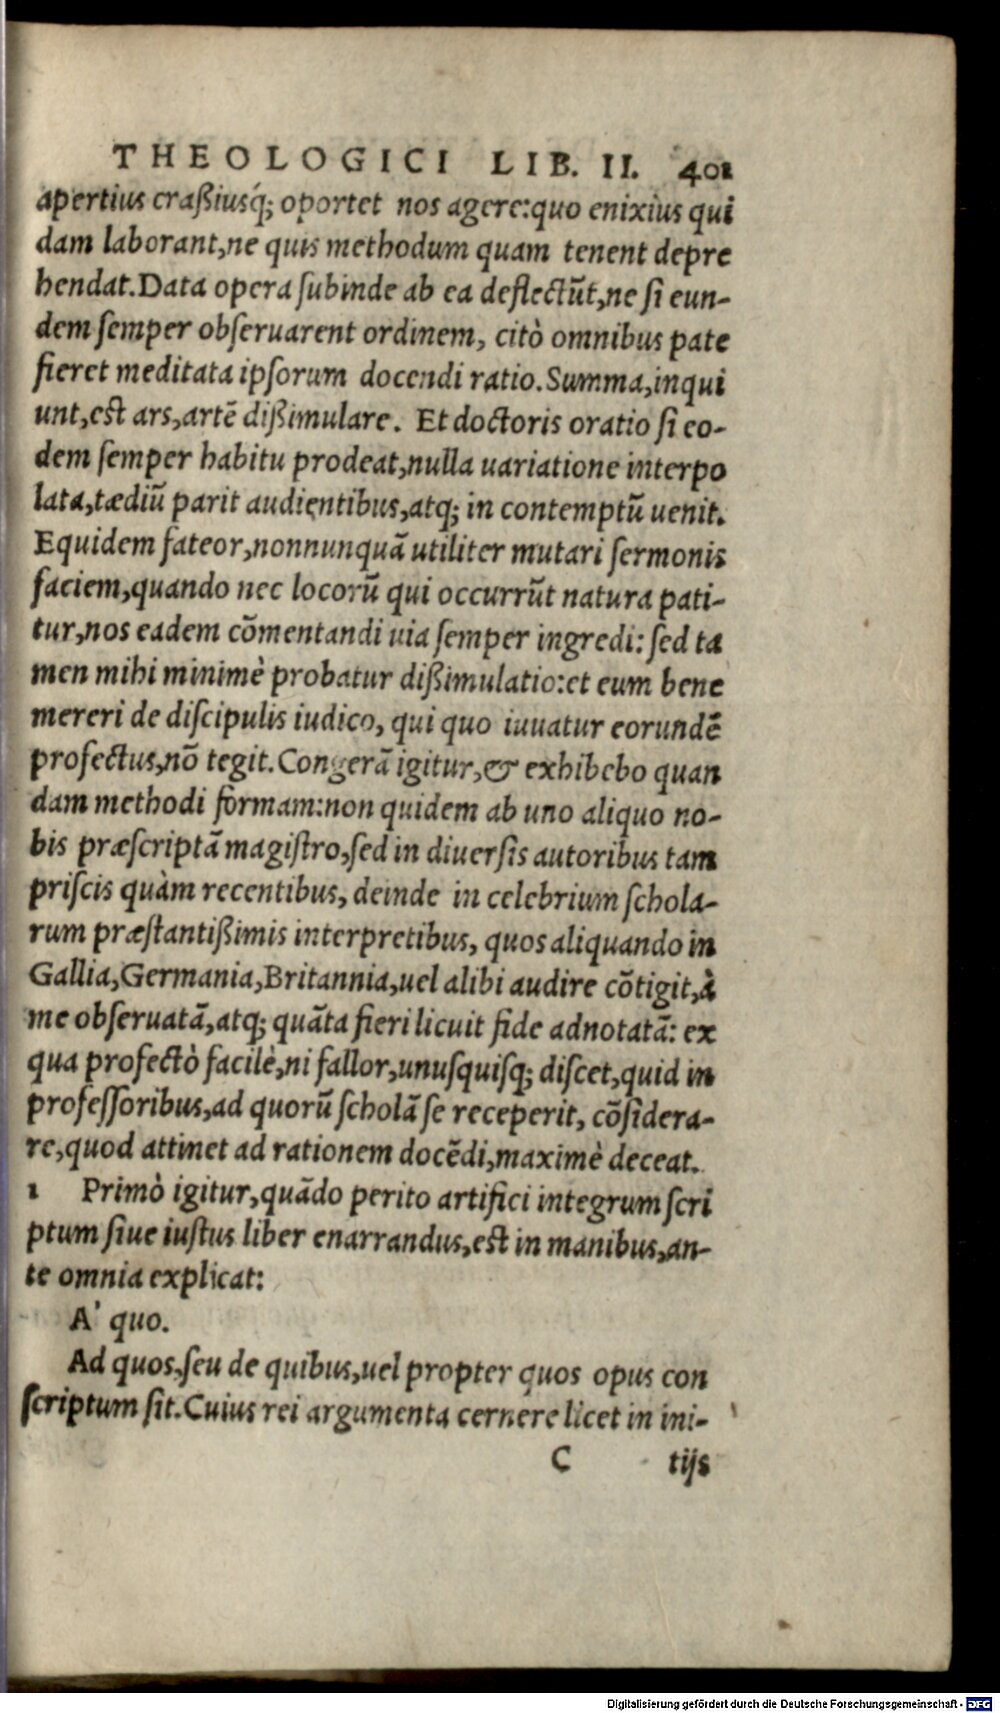 THEOLOGICI LIB. II. 401
apertius craßiusq́; oportet nos agere:quo enixius qui
dam laborant,ne quis methodum quam tenent depre
hendat.Data opera ſubinde ab ea deflectūt,ne ſi eun-
dem ſemper obſeruarent ordinem, citò omnibus pate
fieret meditata ipſorum docendi ratio.Summa,inqui
unt,est ars,artē dißimulare. Et doctoris oratio ſi eo-
dem ſemper habitu prodeat,nulla uariatione interpo
lata,tædiū parit audientibus,atq; in contemptū uenit.
Equidem fateor,nonnunquā utiliter mutari ſermonis
faciem,quando nec locorū qui occurrūt natura pati-
tur,nos eadem cōmentandi uia ſemper ingredi: ſed ta
men mihi minimè probatur dißimulatio:et eum bene
mereri de diſcipulis iudico, qui quo iuuatur eorundē
profectus,nō tegit.Congerā igitur,& exhibebo quan
dam methodi formam:non quidem ab uno aliquo no-
bis præſcriptā magiſtro,ſed in diuerſis autoribus tam
priſcis quàm recentibus, deinde in celebrium ſchola-
rum præſtantißimis interpretibus, quos aliquando in
Gallia,Germania,Britannia,uel alibi audire cōtigit,à
me obſeruatā,atq; quāta fieri licuit fide adnotatā: ex
qua profectò facilè,ni fallor,unuſquiſq; diſcet,quid in
profeſſoribus,ad quorū ſcholā ſe receperit, cōſidera-
re,quod attinet ad rationem docēdi,maximè deceat.
1 Primò igitur,quādo perito artifici integrum ſcri
ptum ſiue iuſtus liber enarrandus,est in manibus,an-
te omnia explicat:
A' quo.
Ad quos,ſeu de quibus,uel propter quos opus con
ſcriptum ſit.Cuius rei argumenta cernere licet in ini-
C tijs
Digitalisierung gefördert durch die Deutsche Forschungsgemeinschaft - DFG